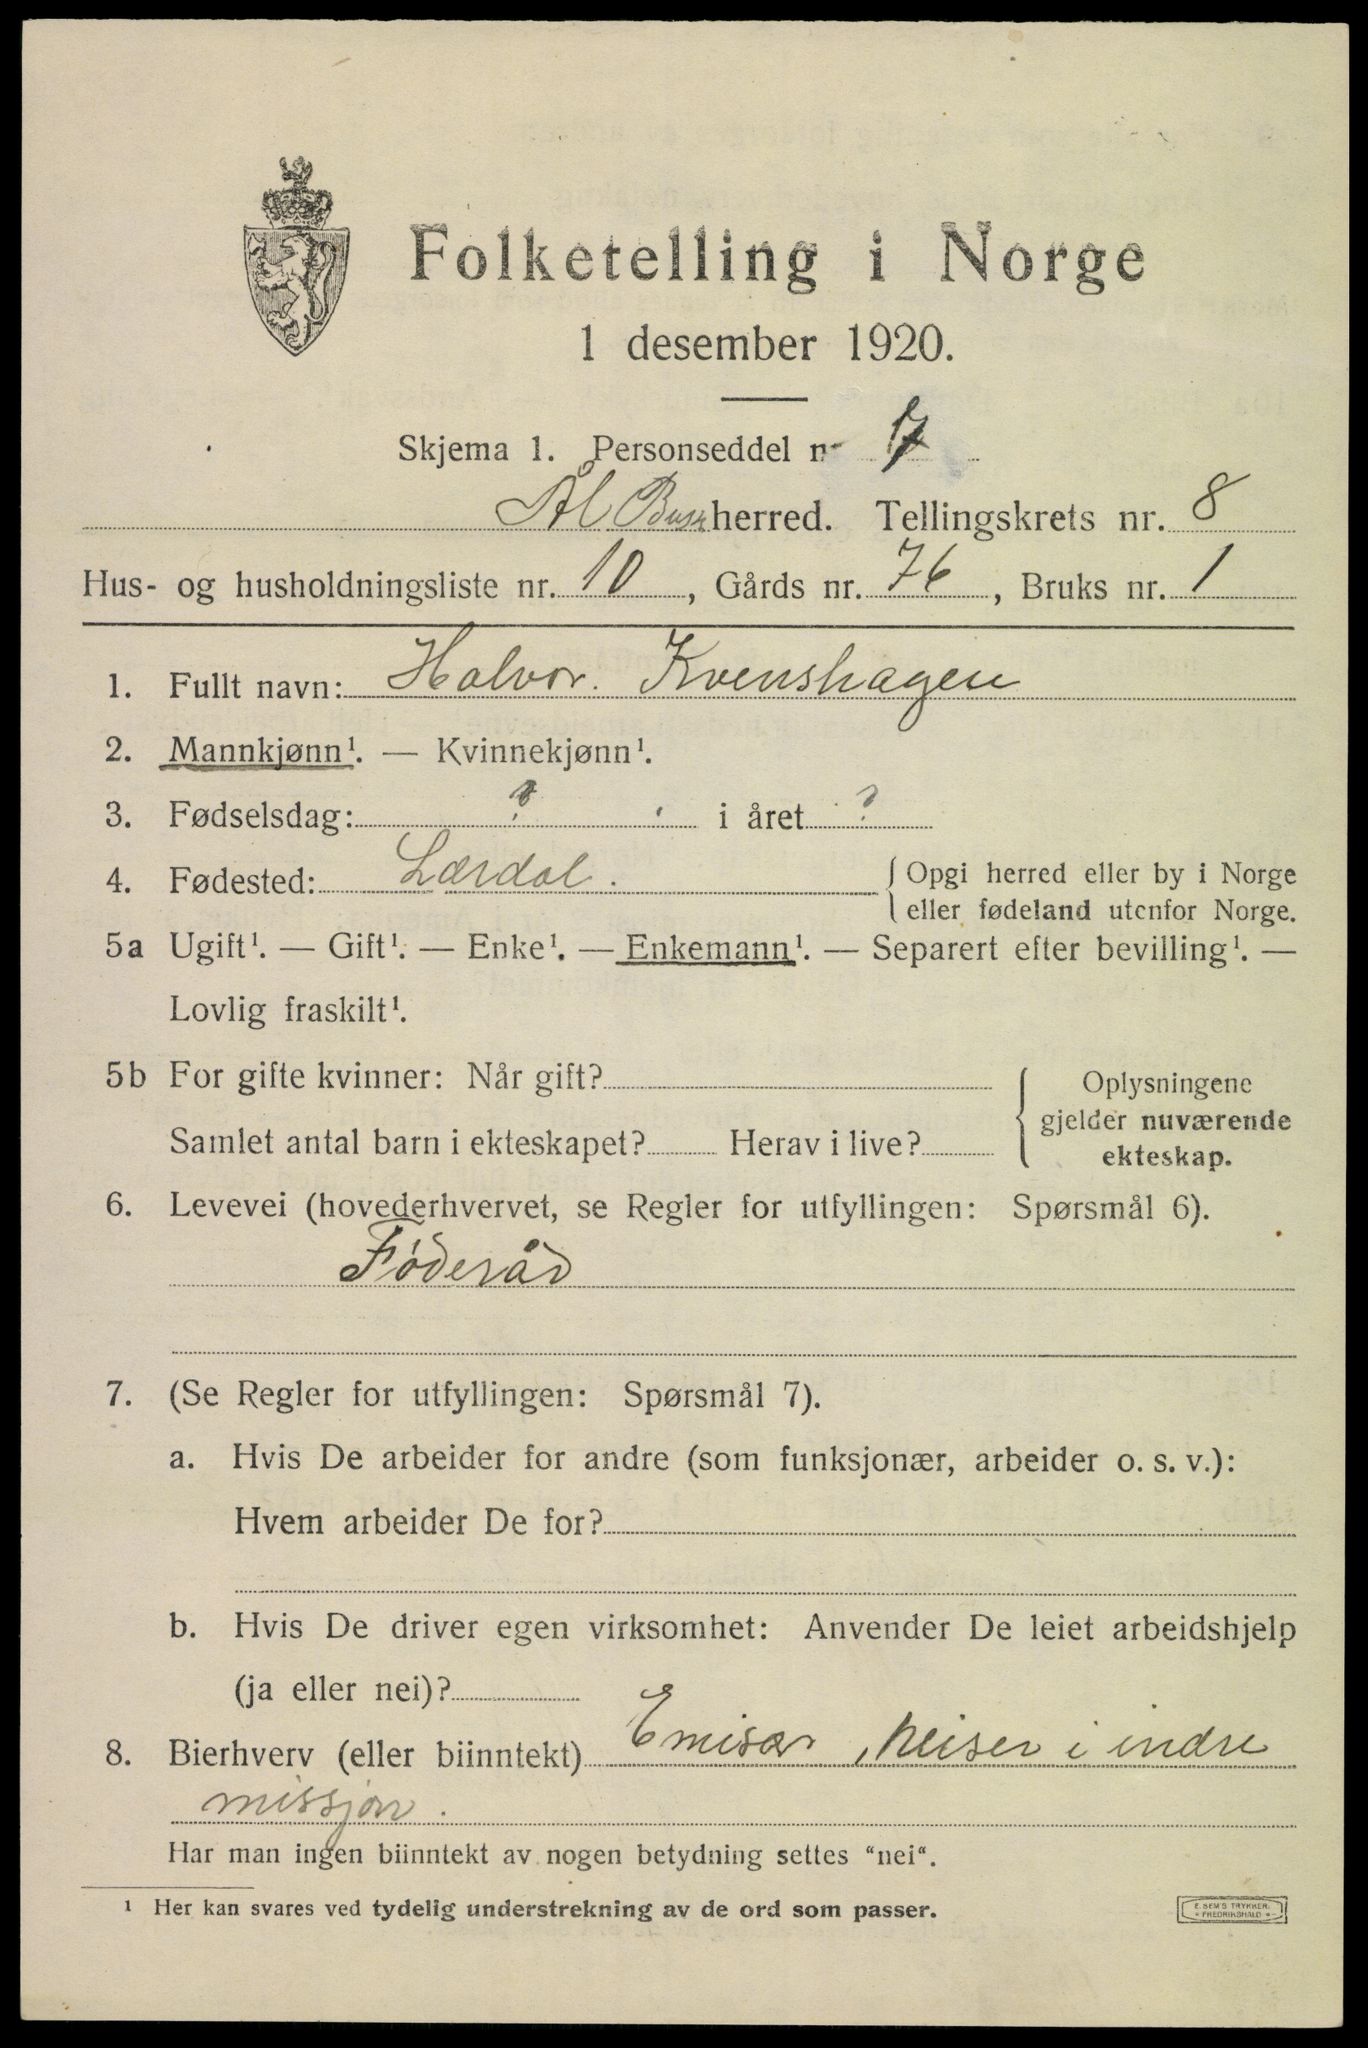 Folketelling i Norge
1 desember 1920.
Skjema 1. Personseddel nr 7
Ål Busk herred. Tellingskrets nr. 8
Hus- og husholdningsliste nr. 10, Gårds nr. 76, Bruks nr. 1
1. Fullt navn: Halvor. Kvenshagen
2. Mannkjønn¹. — Kvinnekjønn¹.
3. Fødselsdag: ? i året ?
4. Fødested: Lærdal. { Opgi herred eller by i Norge
eller fødeland utenfor Norge.
5a Ugift¹. — Gift¹. — Enke¹. — Enkemann¹. — Separert efter bevilling¹. —
Lovlig fraskilt¹.
5b For gifte kvinner: Når gift?
Samlet antal barn i ekteskapet? Herav i live?
{ Oplysningene
gjelder nuværende
ekteskap.
6. Levevei (hovederhvervet, se Regler for utfyllingen: Spørsmål 6).
Føderåd
7. (Se Regler for utfyllingen: Spørsmål 7).
a. Hvis De arbeider for andre (som funksjonær, arbeider o. s. v.):
Hvem arbeider De for?
b. Hvis De driver egen virksomhet: Anvender De leiet arbeidshjelp
(ja eller nei)?
8. Bierhverv (eller biinntekt) Emisær, Reiser i indre
missjon.
Har man ingen biinntekt av nogen betydning settes "nei".
¹ Her kan svares ved tydelig understrekning av de ord som passer.
E. SEM'S TRYKKERI
FREDRIKSHALD